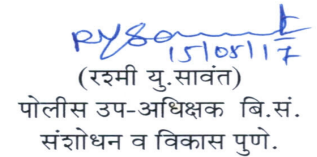 RYSawant
15/05/17
(रश्मी यु.सावंत)
पोलीस उप-अधिक्षक बि.सं.
संशोधन व विकास पुणे.